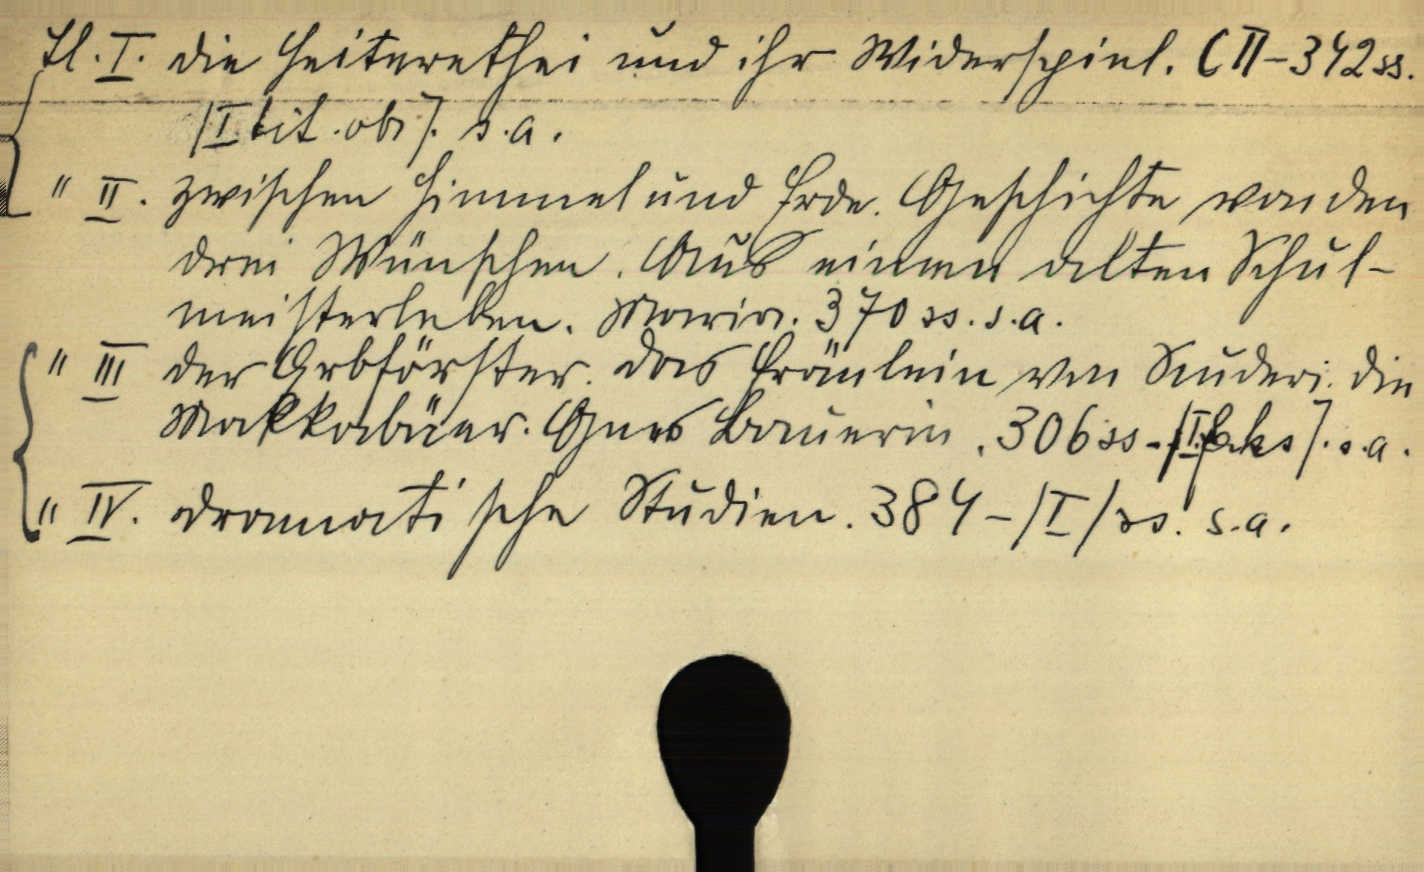 Tl. I. die Heiterethei und ihr Widerspiel. CII-342 ss.
[I tit. obr]. s.a.
" II. zwischen Himmel und Erde. Geschichte von den
drei Wünschen. Aus einem alten Schul-
meisterleben. Maria. 370 ss. s.a.
" III der Erbförster. das Fräulein von Scuderi. die
Makkabäer. Agnes Bauerin. 306 ss. s.a.
" IV. dramatische Studien. 384-[I] ss. s.a.